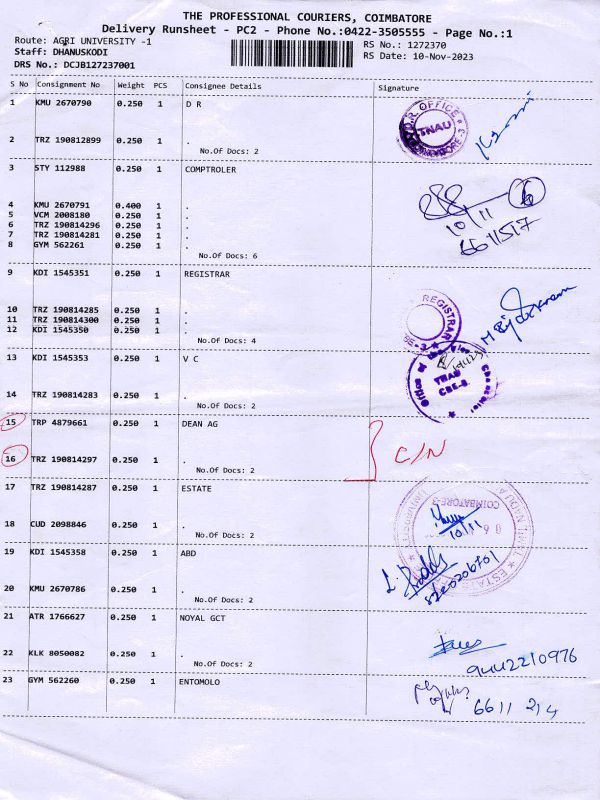 THE PROFESSIONAL COURIERS, COIMBATORE
Delivery Runsheet - PC2 - Phone No.:0422-3505555 - Page No.:1
Route: AGRI UNIVERSITY -1
RS No.: 1272370
Staff: DHANUSKODI
RS Date: 10-Nov-2023
DRS No.: DCJB127237001
S No Consignment No Weight PCS Consignee Details Signature
1 KMU 2670790 0.250 1 D R
D.R. OFFICE
TNAU
2 TRZ 190812899 0.250 1 .
No.Of Docs: 2
3 STY 112988 0.250 1 COMPTROLER
4 KMU 2670791 0.400 1 .
5 VCM 2008180 0.250 1 .
6 TRZ 190814296 0.250 1 .
7 TRZ 190814281 0.250 1 .
8 GYM 562261 0.250 1 .
10/11
6611517
No.Of Docs: 6
9 KDI 1545351 0.250 1 REGISTRAR
REGISTRAR
10 TRZ 190814285 0.250 1 .
11 TRZ 190814300 0.250 1 .
12 KDI 1545350 0.250 1 .
No.Of Docs: 4
13 KDI 1545353 0.250 1 V C
TNAU
CBE-3.
14 TRZ 190814283 0.250 1 .
No.Of Docs: 2
15 TRP 4879661 0.250 1 DEAN AG
C/N
16 TRZ 190814297 0.250 1 .
No.Of Docs: 2
17 TRZ 190814287 0.250 1 ESTATE
COIMBATORE-3
18 CUD 2098846 0.250 1 .
10/11
No.Of Docs: 2
19 KDI 1545358 0.250 1 ABD
20 KMU 2670786 0.250 1 .
No.Of Docs: 2
21 ATR 1766627 0.250 1 NOYAL GCT
22 KLK 8050082 0.250 1 .
No.Of Docs: 2
9442210976
23 GYM 562260 0.250 1 ENTOMOLO
6611 214